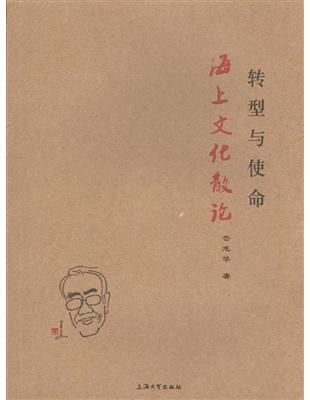 转型与使命
海上文化散论
著
上海大学出版社